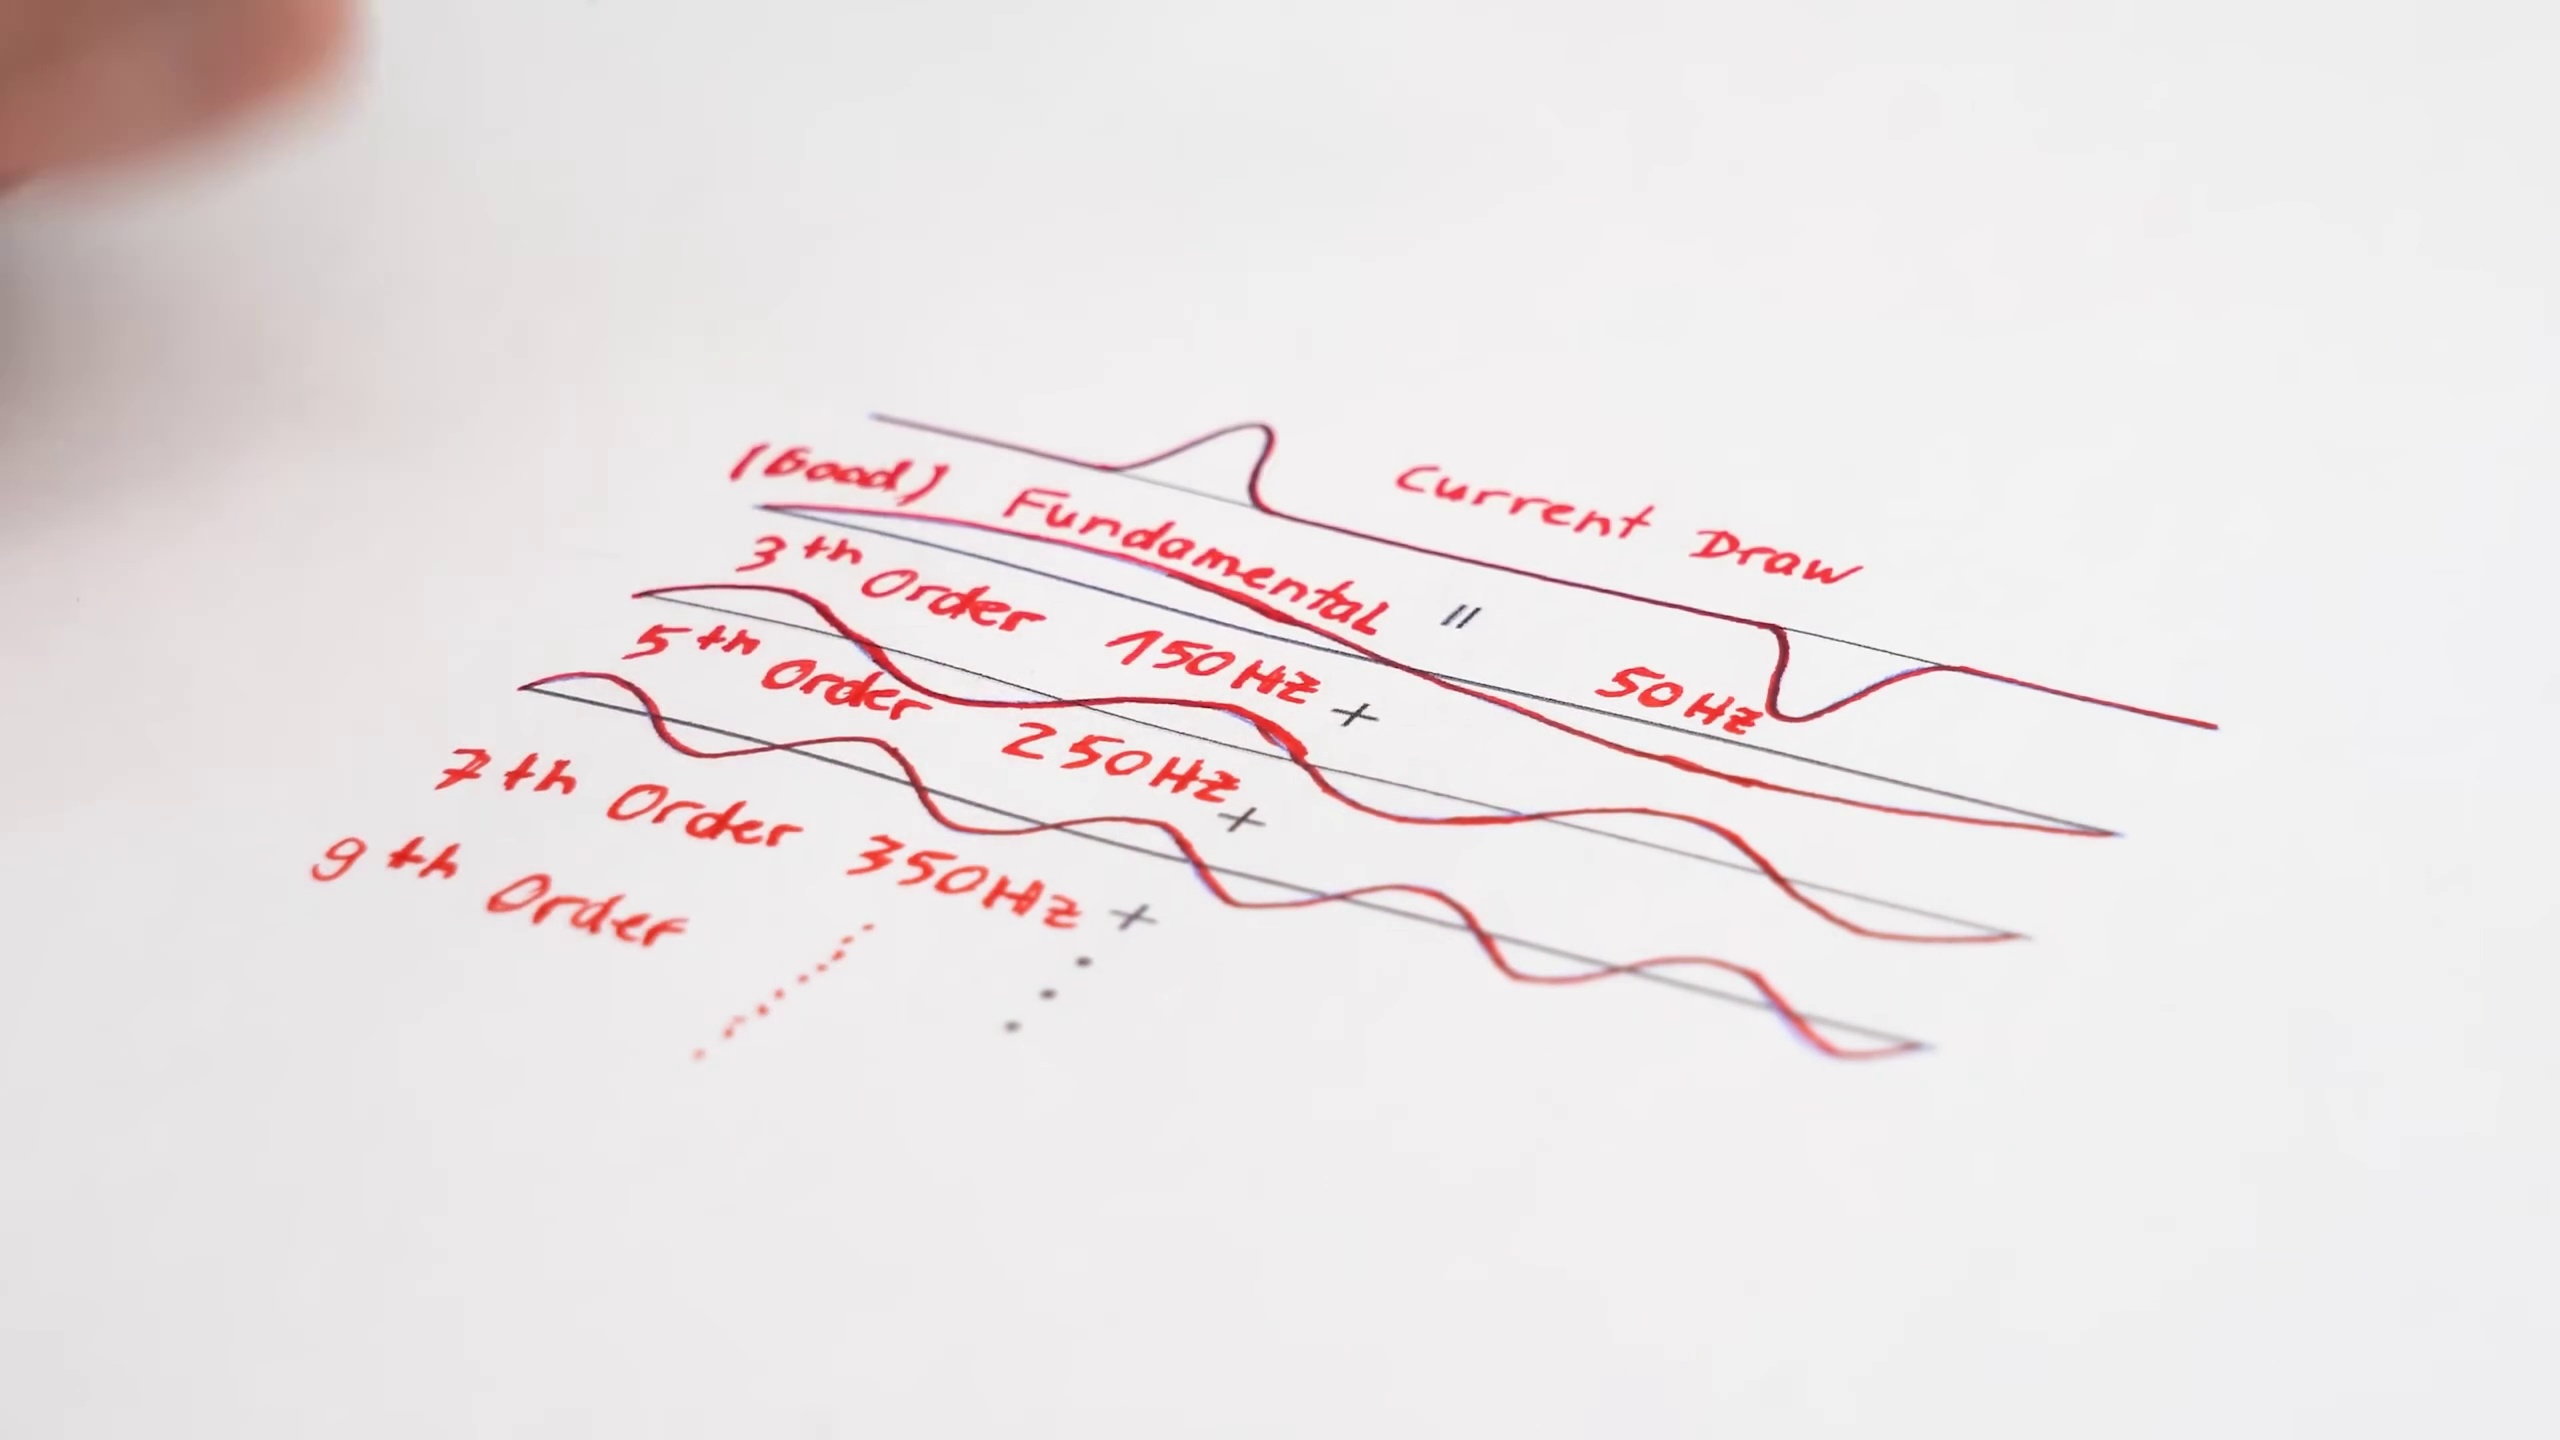 Current Draw
=
(Good) Fundamental 50Hz
+
3th Order 150Hz
+
5th Order 250Hz
+
7th Order 350Hz
9th Order